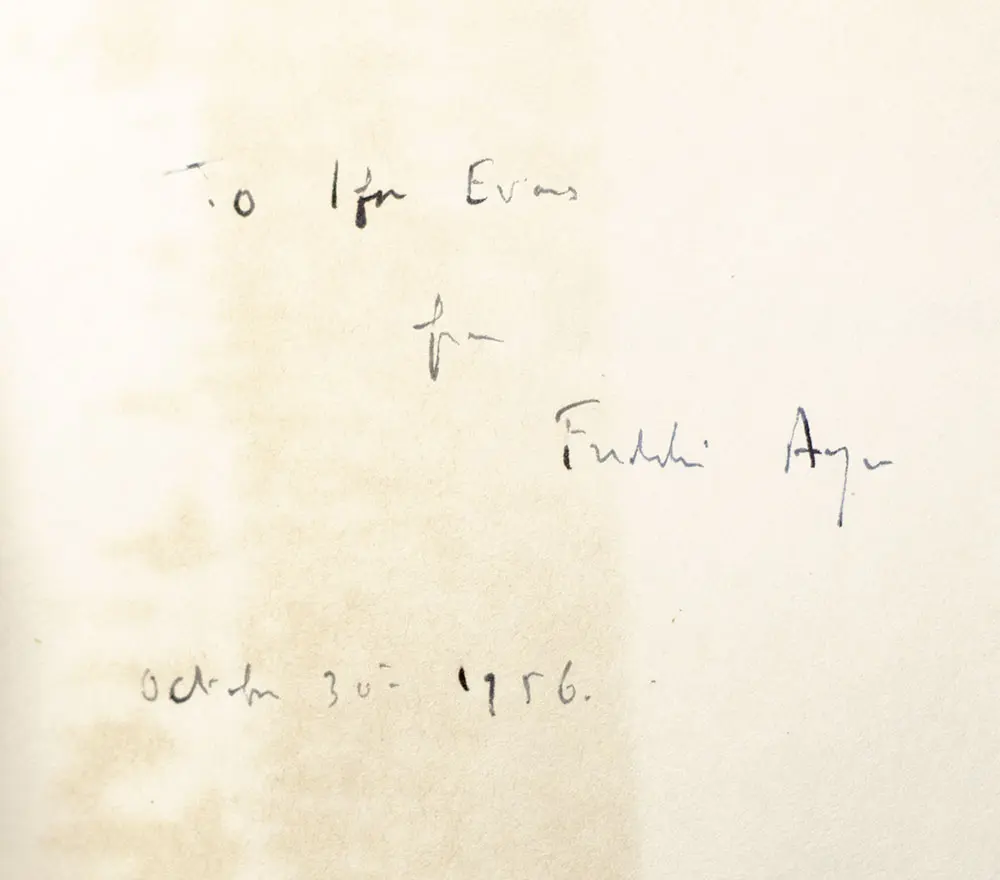 To Ifor Evans
from
Freddie Ayer
October 30th 1956.